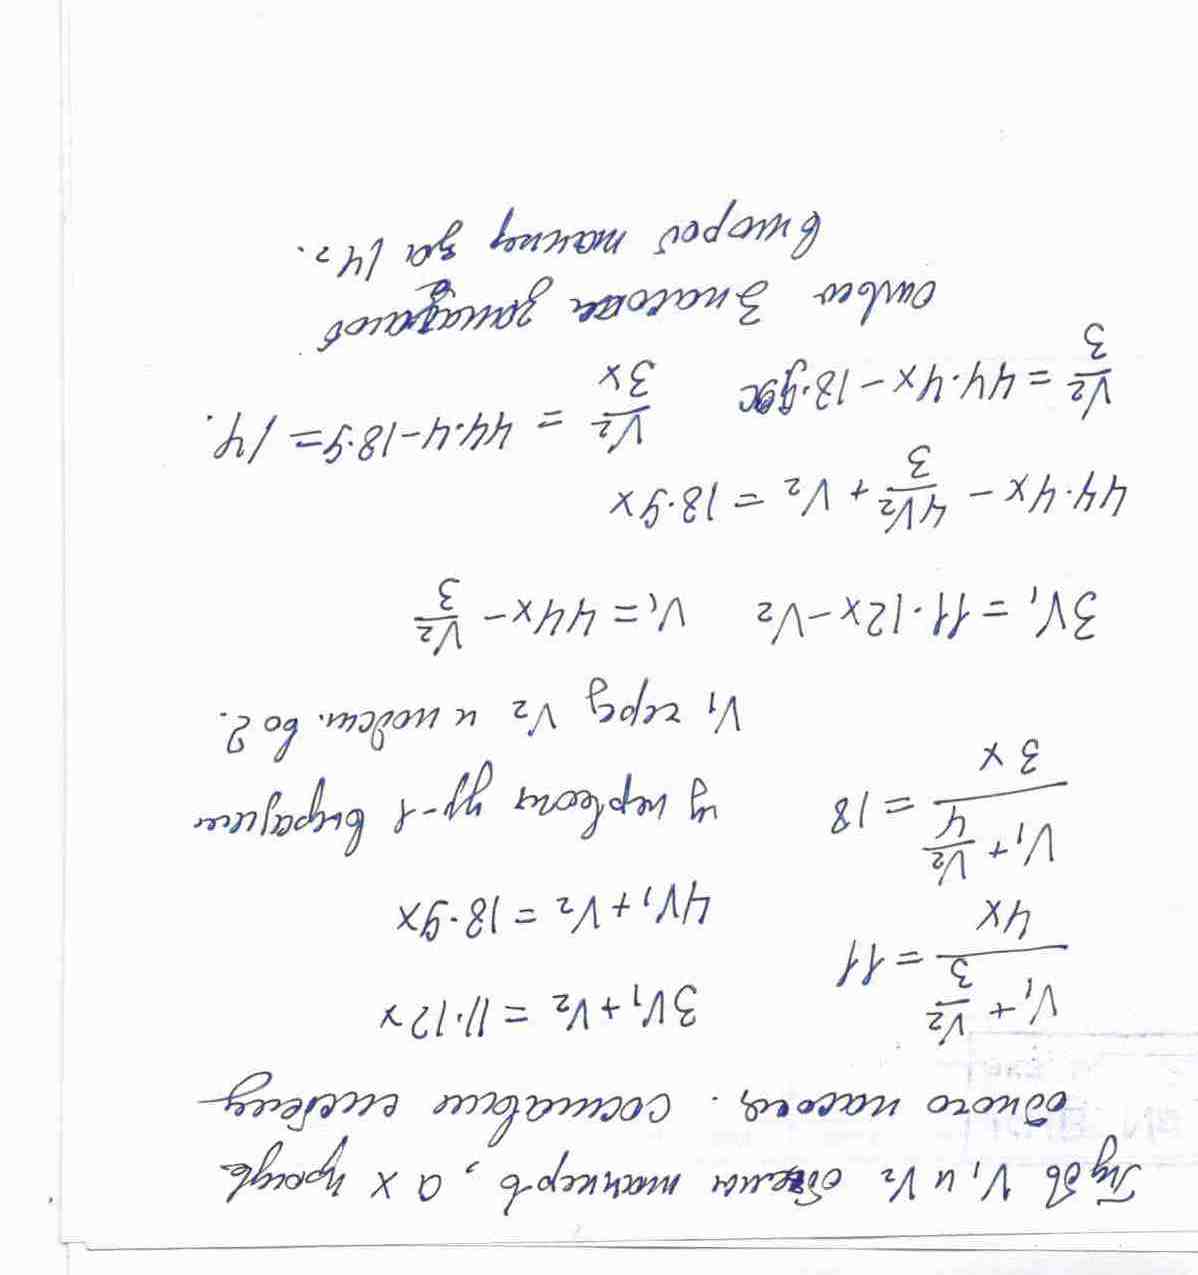 Пусть V₁ и V₂ объемы танкеров, а x произв.
одного насоса. составим систему
(V₁ + V₂/3)/(4x) = 11   3V₁ + V₂ = 11·12x
(V₁ + V₂/4)/(3x) = 18   4V₁ + V₂ = 18·9x
из первого ур-я выразим
V₁ через V₂ и подст. во 2.
3V₁ = 11·12x - V₂   V₁ = 44x - V₂/3
44·4x - 4V₂/3 + V₂ = 18·9x
V₂/3 = 44·4x - 18·9x   V₂/3x = 44·4 - 18·9 = 14.
3 насоса
второй танкер за 14 ч.